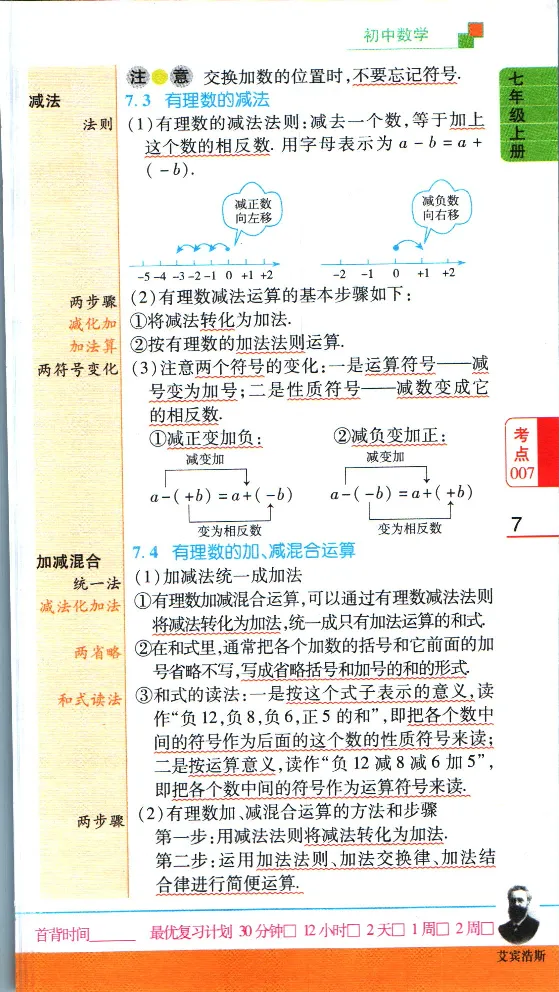 初中数学
七年级上册
注意 交换加数的位置时,不要忘记符号.
减法
7.3 有理数的减法
法则
(1)有理数的减法法则:减去一个数,等于加上
这个数的相反数. 用字母表示为 a - b = a +
( - b).
减正数
向左移
减负数
向右移
-5 -4 -3 -2 -1 0 +1 +2
-2 -1 0 +1 +2
两步骤
(2)有理数减法运算的基本步骤如下:
减化加
①将减法转化为加法.
加法算
②按有理数的加法法则运算.
两符号变化
(3)注意两个符号的变化:一是运算符号——减
号变为加号;二是性质符号——减数变成它
的相反数.
①减正变加负: ②减负变加正:
减变加 减变加
a-( +b) = a+( -b) a-( -b) = a+( +b)
变为相反数 变为相反数
考点
007
7
加减混合
7.4 有理数的加、减混合运算
统一法
(1)加减法统一成加法
减法化加法
①有理数加减混合运算,可以通过有理数减法法则
将减法转化为加法,统一成只有加法运算的和式.
两省略
②在和式里,通常把各个加数的括号和它前面的加
号省略不写,写成省略括号和加号的和的形式.
和式读法
③和式的读法:一是按这个式子表示的意义,读
作“负12,负8,负6,正5的和”,即把各个数中
间的符号作为后面的这个数的性质符号来读;
二是按运算意义,读作“负12减8减6加5”,
即把各个数中间的符号作为运算符号来读.
两步骤
(2)有理数加、减混合运算的方法和步骤
第一步:用减法法则将减法转化为加法.
第二步:运用加法法则、加法交换律、加法结
合律进行简便运算.
首背时间______ 最优复习计划 30分钟□ 12小时□ 2天□ 1周□ 2周□
艾宾浩斯